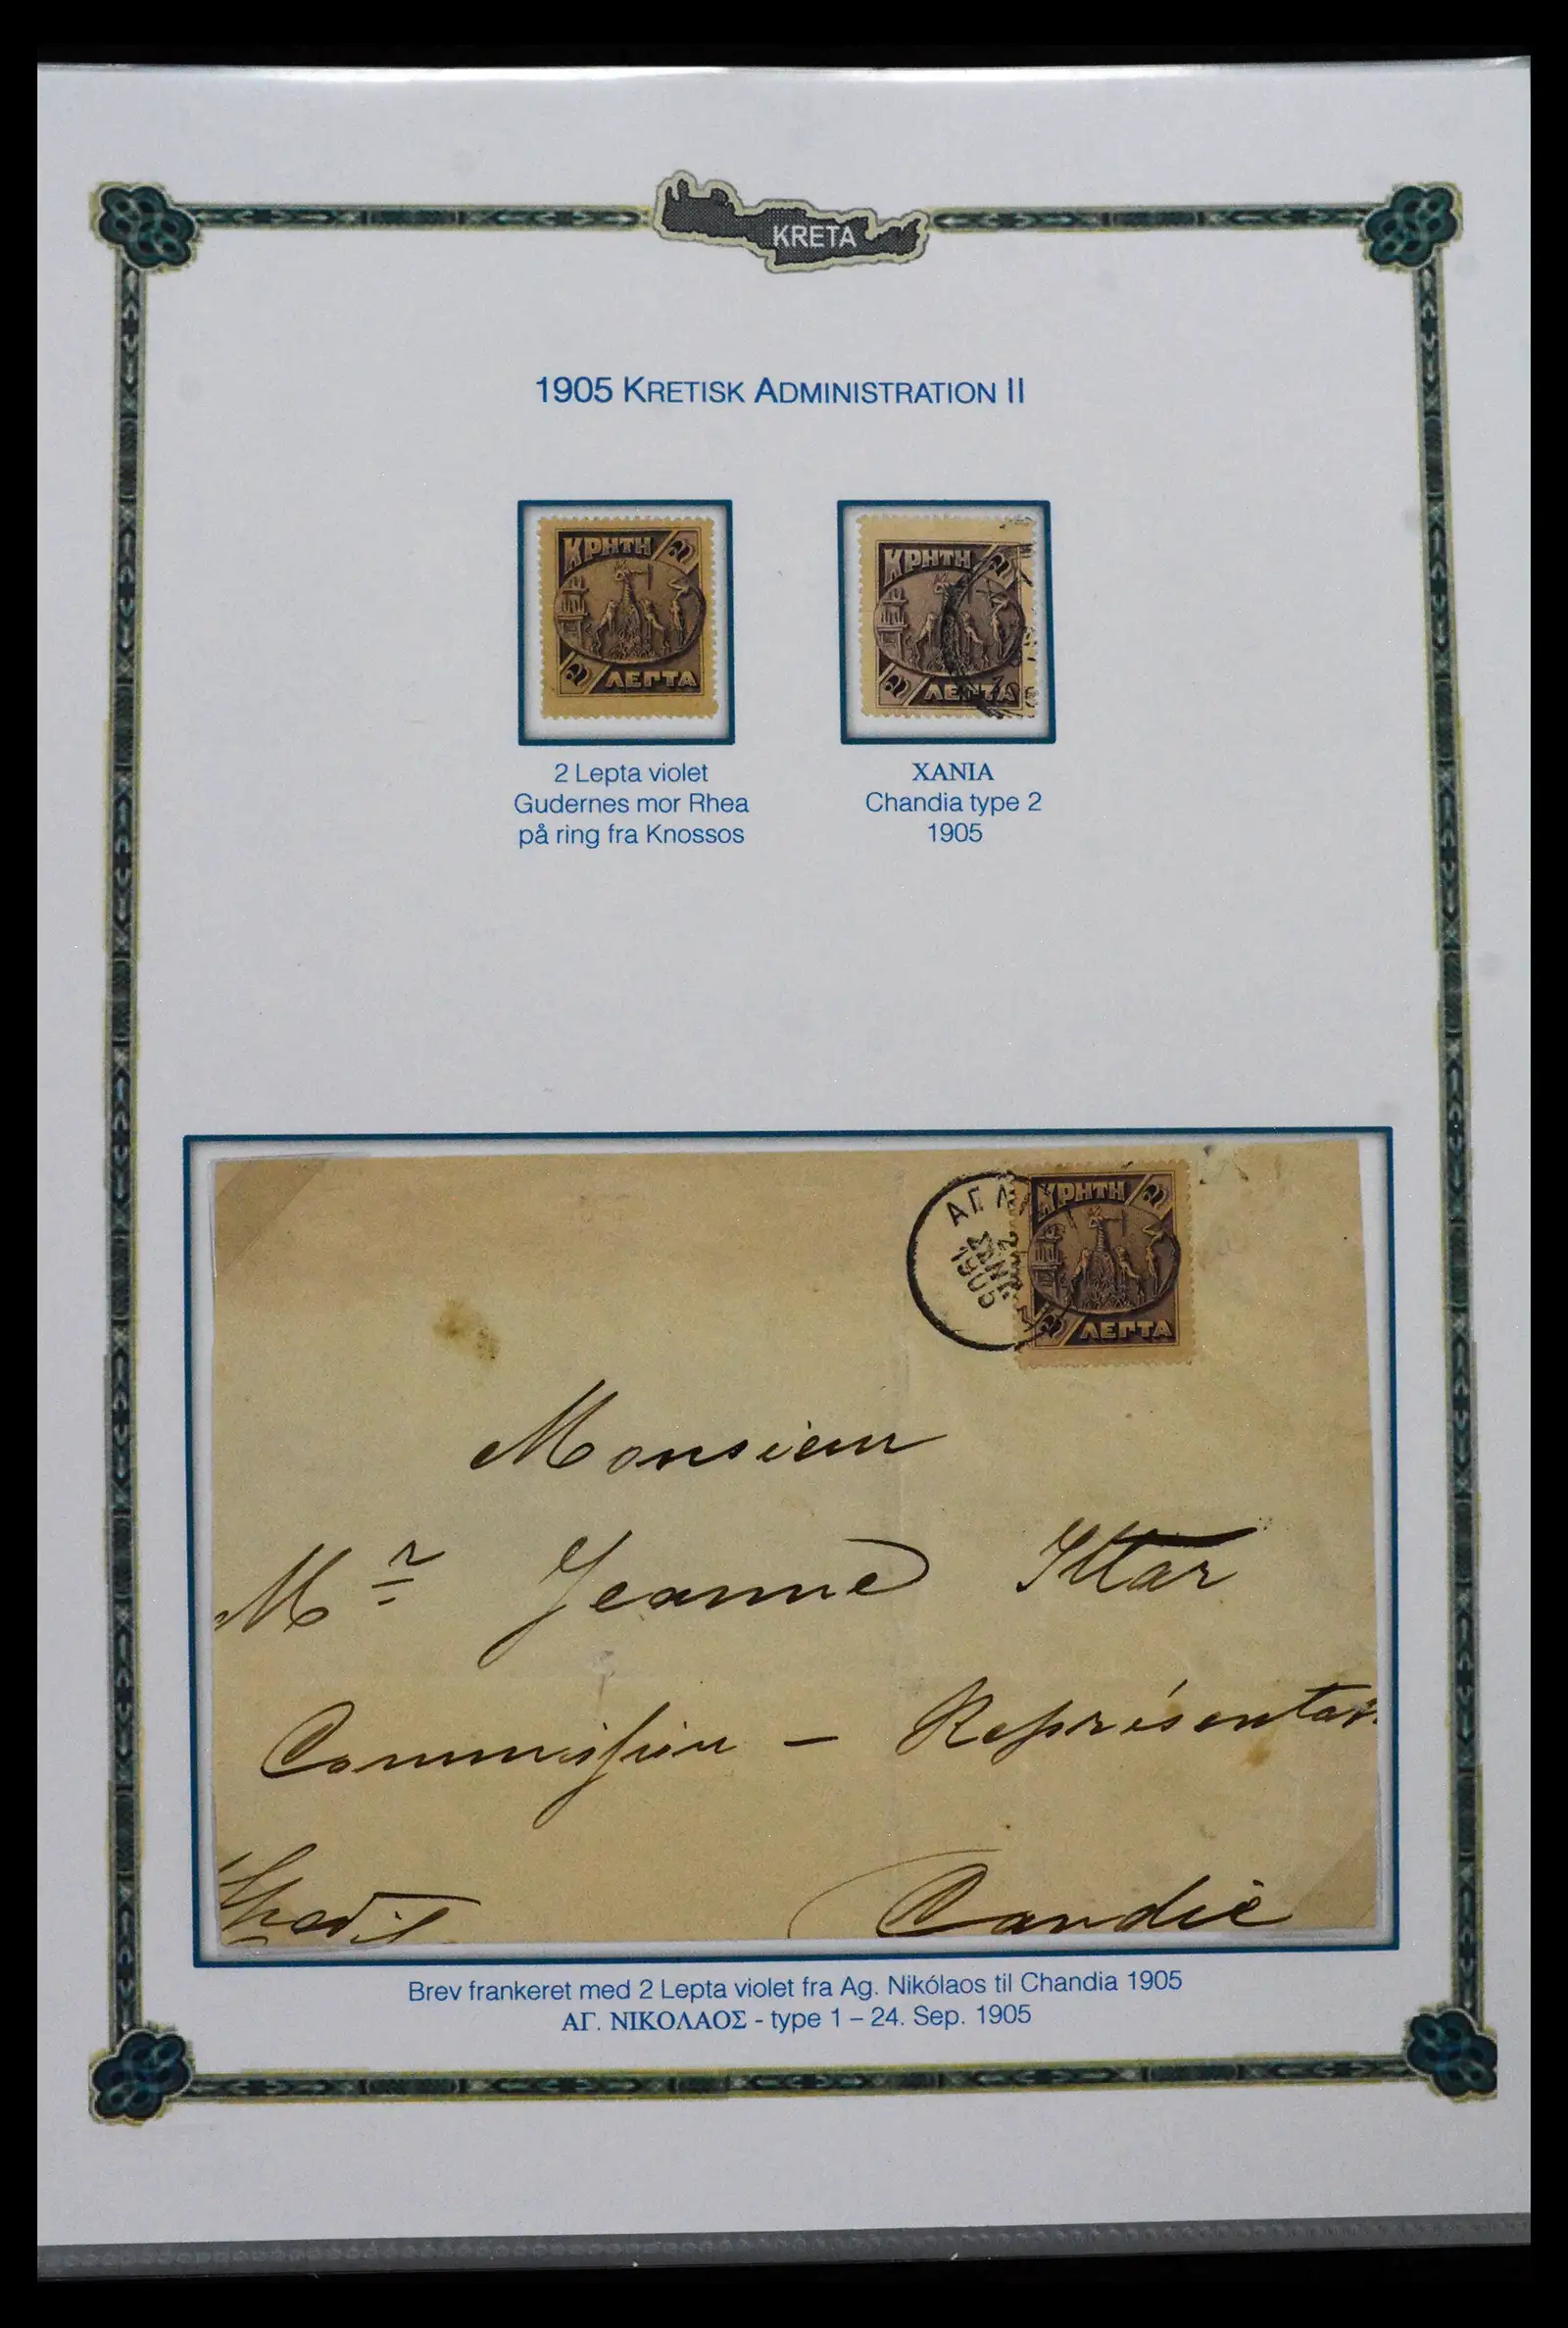 KRETA
1905 KRETISK ADMINISTRATION II
ΚΡΗΤΗ 2
2 ΛΕΠΤΑ
ΚΡΗΤΗ 2
2 ΛΕΠΤΑ
2 Lepta violet
Gudernes mor Rhea
på ring fra Knossos
ΧΑΝΙΑ
Chandia type 2
1905
ΑΓ. Ν
1905
ΚΡΗΤΗ 2
2 ΛΕΠΤΑ
Monsieur
Mr Jeanne Ittar
Commission - Représentan
Candie
Brev frankeret med 2 Lepta violet fra Ag. Nikólaos til Chandia 1905
ΑΓ. ΝΙΚΟΛΑΟΣ - type 1 – 24. Sep. 1905